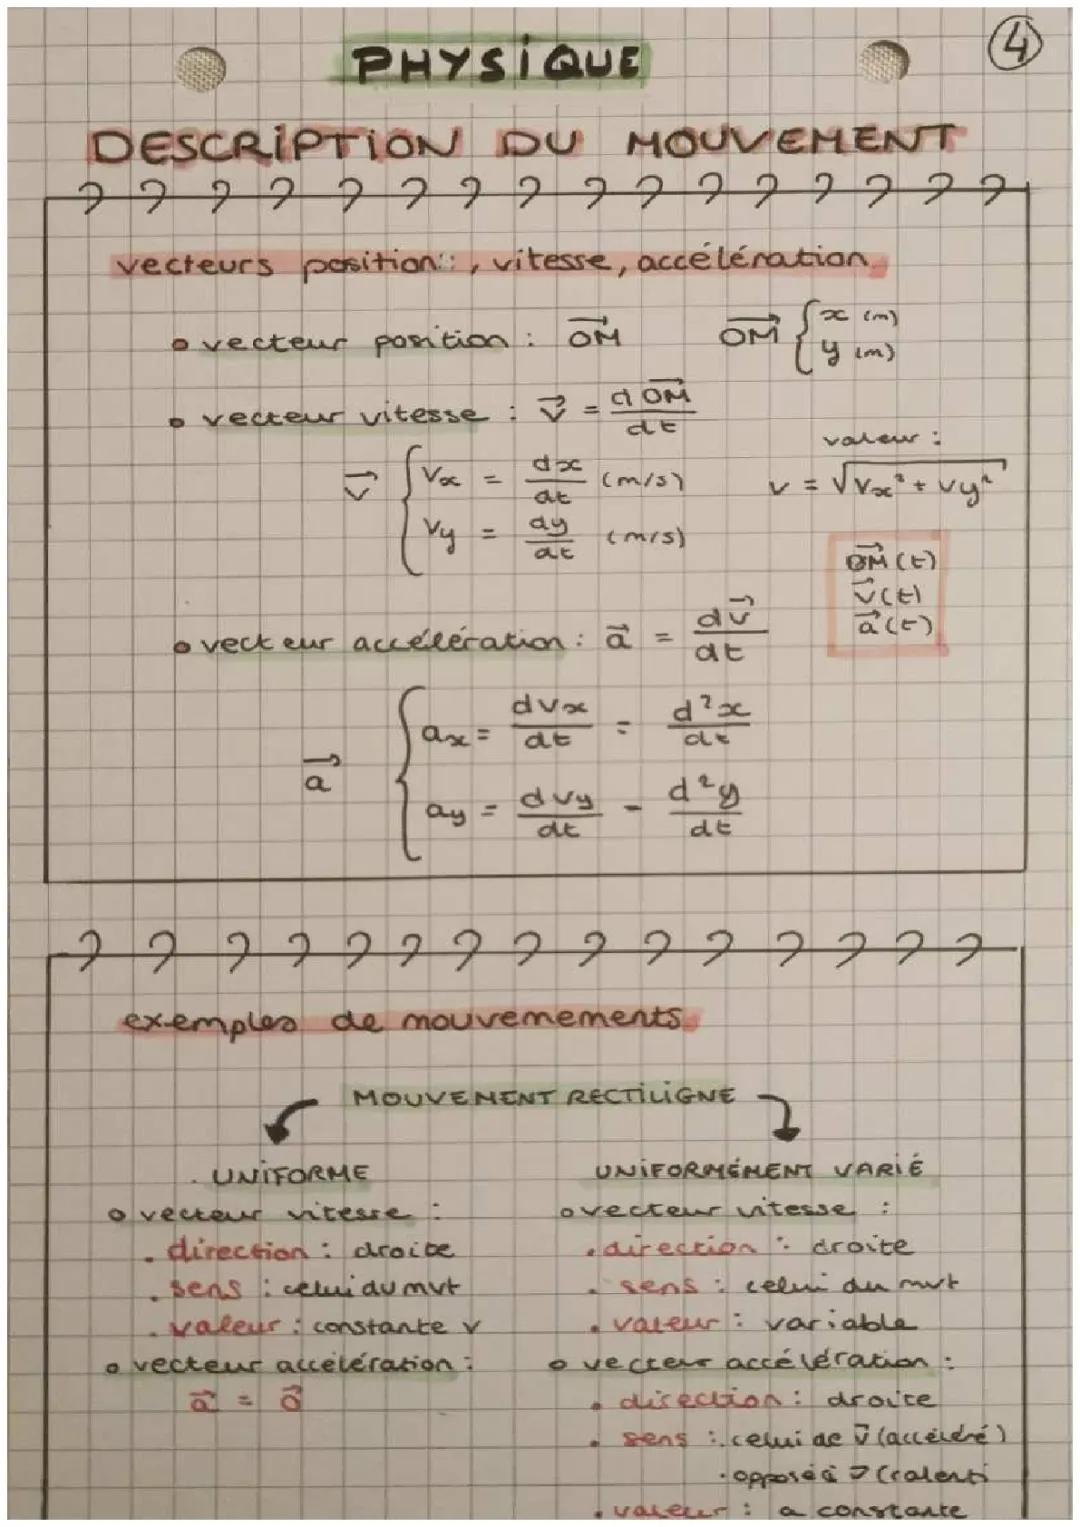 PHYSIQUE
4
DESCRIPTION DU MOUVEMENT
vecteurs position : , vitesse, accélération
vecteur position : OM⃗ OM⃗ { x (m)
y (m)
vecteur vitesse : v⃗ = dOM⃗/dt
valeur :
v⃗ { Vx = dx/dt (m/s) v = √Vx² + Vy²
Vy = dy/dt (m/s)
OM⃗(t)
v⃗(t)
a⃗(t)
vecteur accélération : a⃗ = dv⃗/dt
a⃗ { ax = dvx/dt = d²x/dt
ay = dvy/dt - d²y/dt
exemples de mouvemements
MOUVEMENT RECTILIGNE
UNIFORME
vecteur vitesse :
. direction : droite
. sens : celui du mvt
. valeur : constante v
vecteur accélération :
a⃗ = 0⃗
UNIFORMÉMENT VARIÉ
vecteur vitesse :
. direction : droite
. sens : celui du mvt
. valeur : variable
vecteur accélération :
. direction : droite
. sens : . celui de v⃗ (accéléré)
. opposé à v⃗ (ralenti
. valeur : a constante